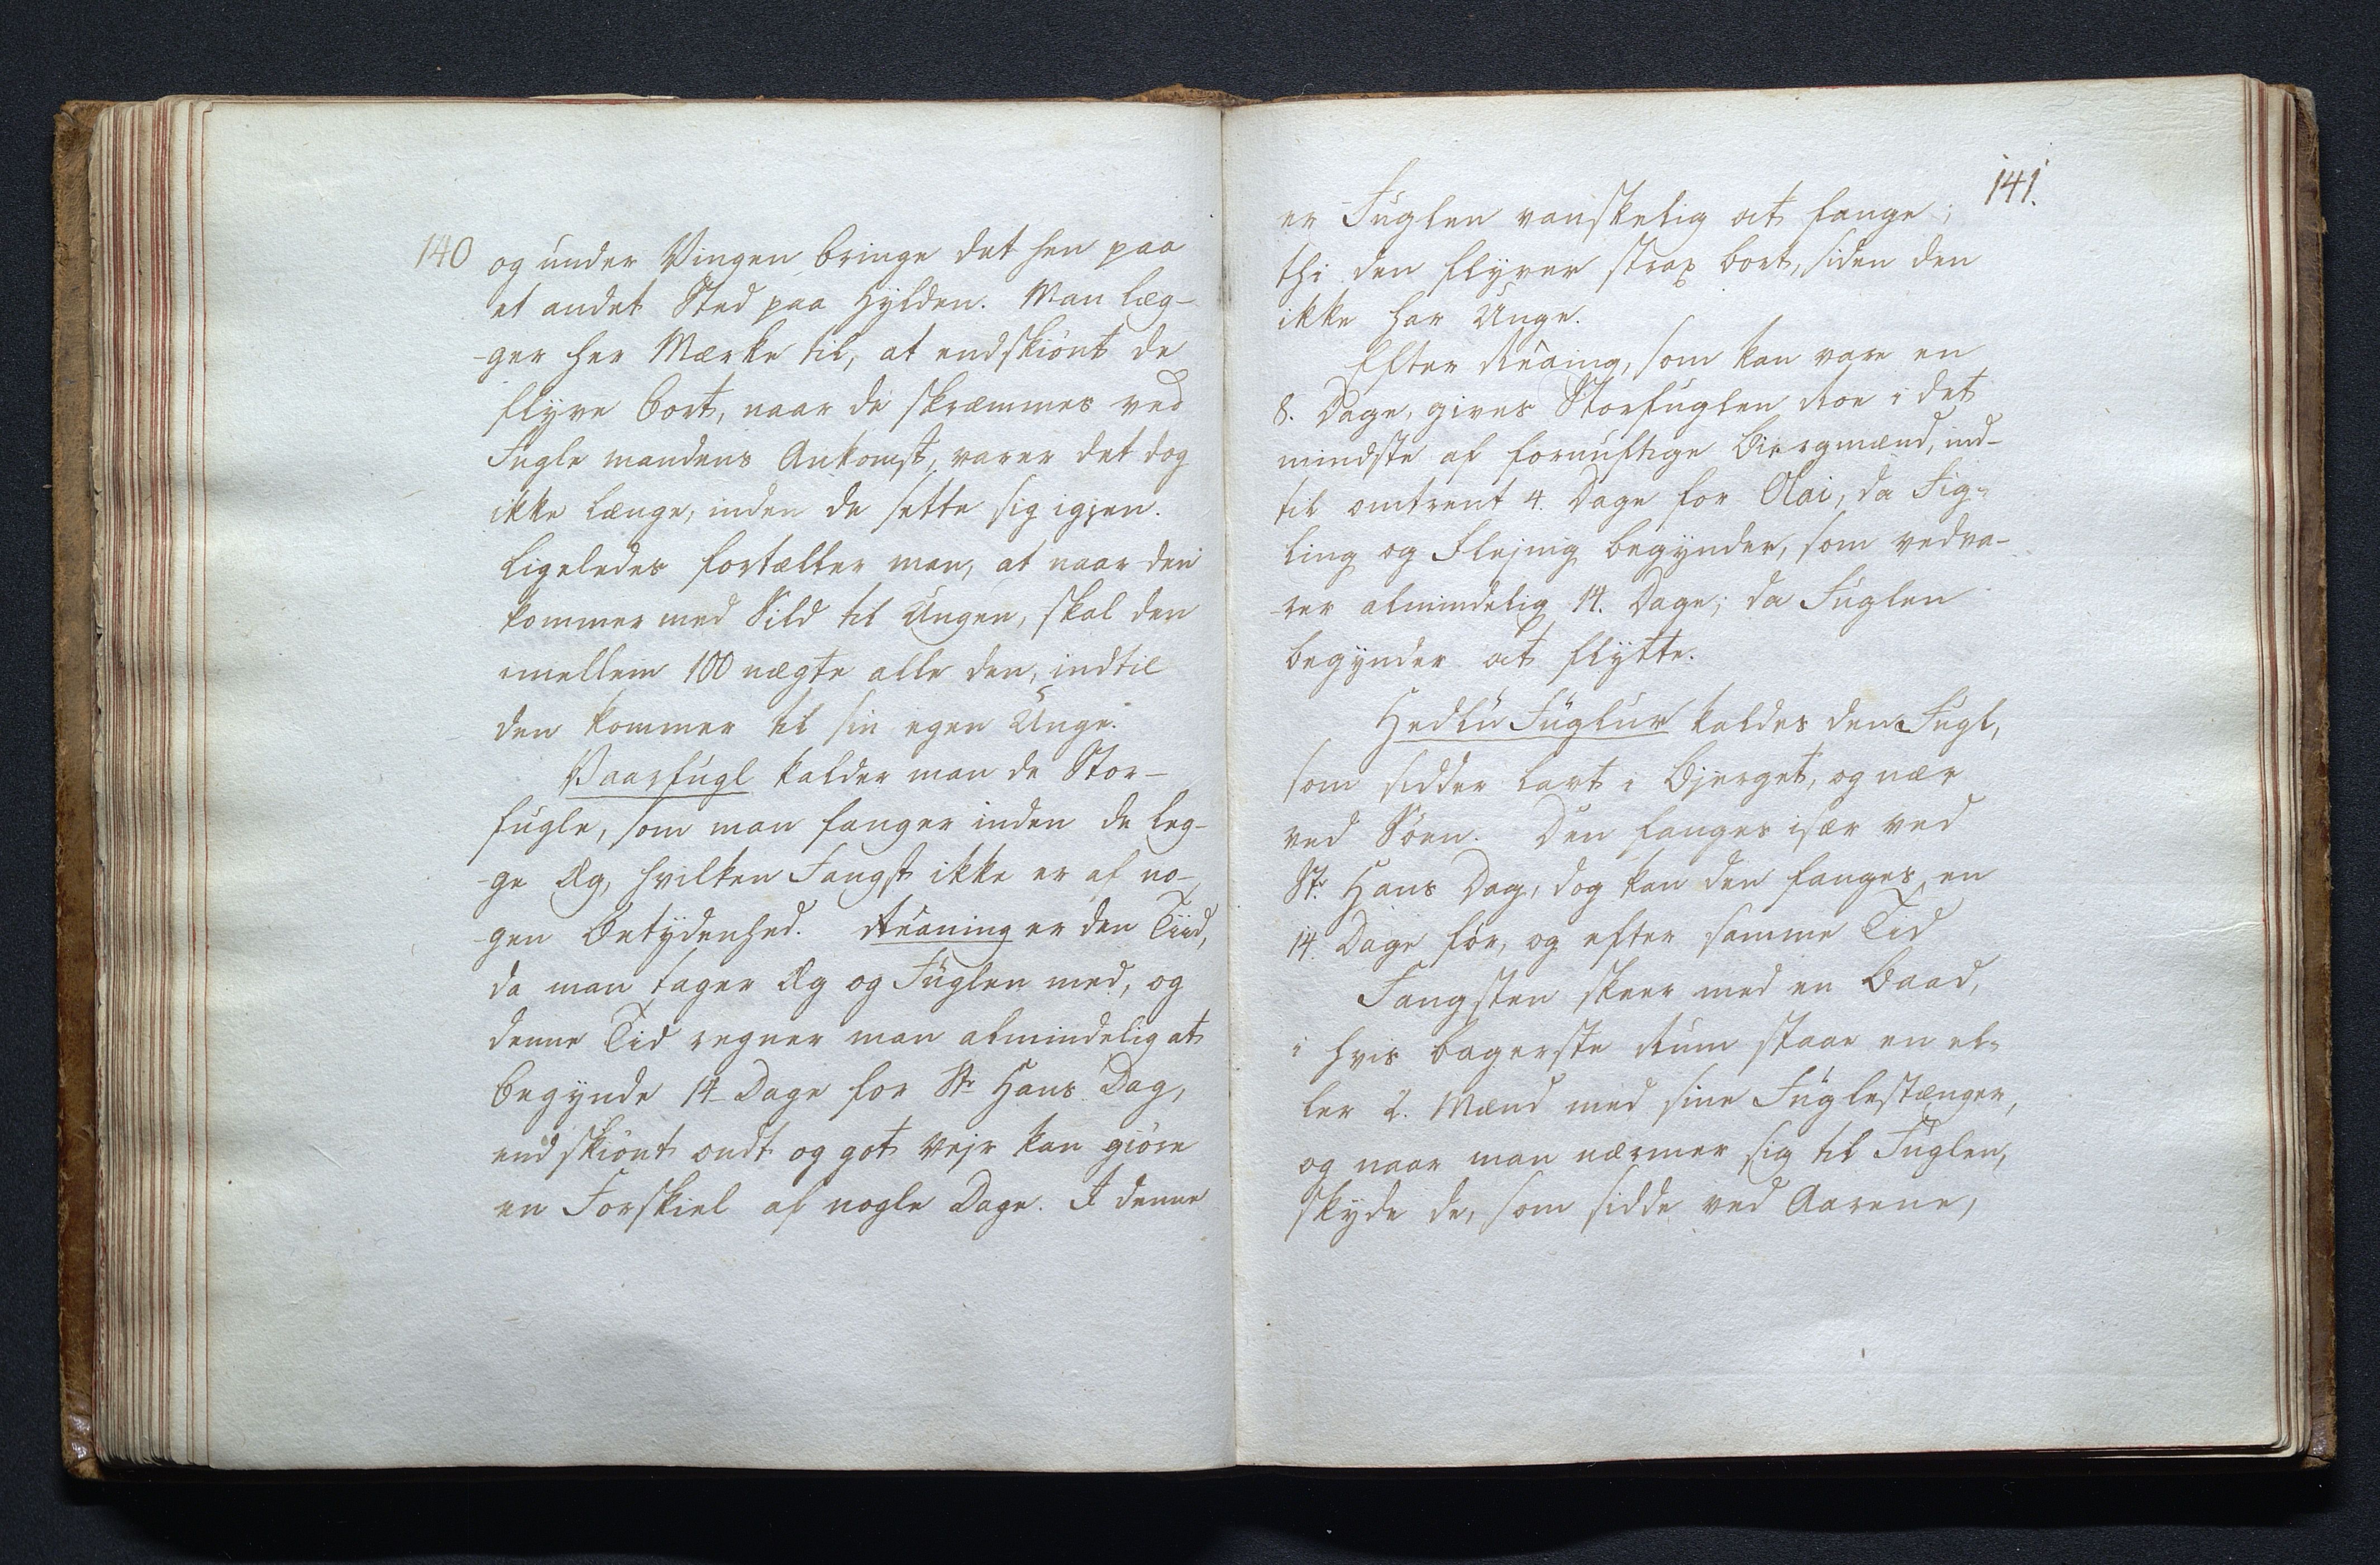 140
og under Vingen bringe det hen paa
et andet Sted paa Hylden. Man læg-
-ger her Mærke til, at endskiönt de
flyve bort, naar de skræmmes ved
Fugle mandens Ankomst, varer det dog
ikke længe, inden de sette sig igjen.
Ligeledes fortæller man, at naar den
kommer med Sild til Ungen, skal den
imellem 100 nægte alle den, indtil
den kommer til sin egen Unge.
Vaarfugl kalder man de Stor-
fugle, som man fanger inden de leg-
-ge Æg, hvilken Fangst ikke er af no-
-gen Betydenhed. Ruaning er den Tiid,
da man tager Æg og Fuglen med, og
denne Tid regner man almindelig at
begynde 14 Dage for St. Hans Dag,
endskiönt ondt og got Vejr kan giöre
en Forskiel af nogle Dage. I denne
141.
er Fuglen vanskelig at fange;
thi den flyver strax bort, siden den
ikke har Unge.
Efter Ruaing, som kan vare en
8. Dage, gives Storfuglen Roe i det
mindste af fornuftige Biergmænd, ind-
til omtrent 4. Dage for Olai, da Fig-
ling og Flejnig begynder, som vedva-
-rer almindelig 14. Dage; da Fuglen
begynder at flytte.
Hedlu Fuglur kaldes den Fugl,
som sidder lavt i Bjerget, og nær
ved Söen. Den fanges især ved
St. Hans Dag, dog kan den fanges en
14. Dage för, og efter samme Tid
Fangsten skeer med en Baad,
i hvis bagerste Rum staar en el-
ler 2. Mænd med sine Fuglestænger,
og naar man nærmer sig til Fuglen,
skyde de, som sidde ved Aarene,